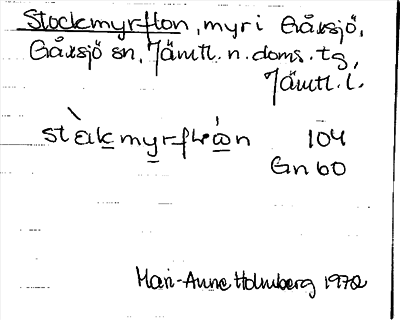 Stockmyrflon, myr i Gåxsjö,
Gåxsjö sn, Jämtl. n. doms. tg,
Jämtl. l.
104
Gn 60
Mari-Anne Holmberg 1972